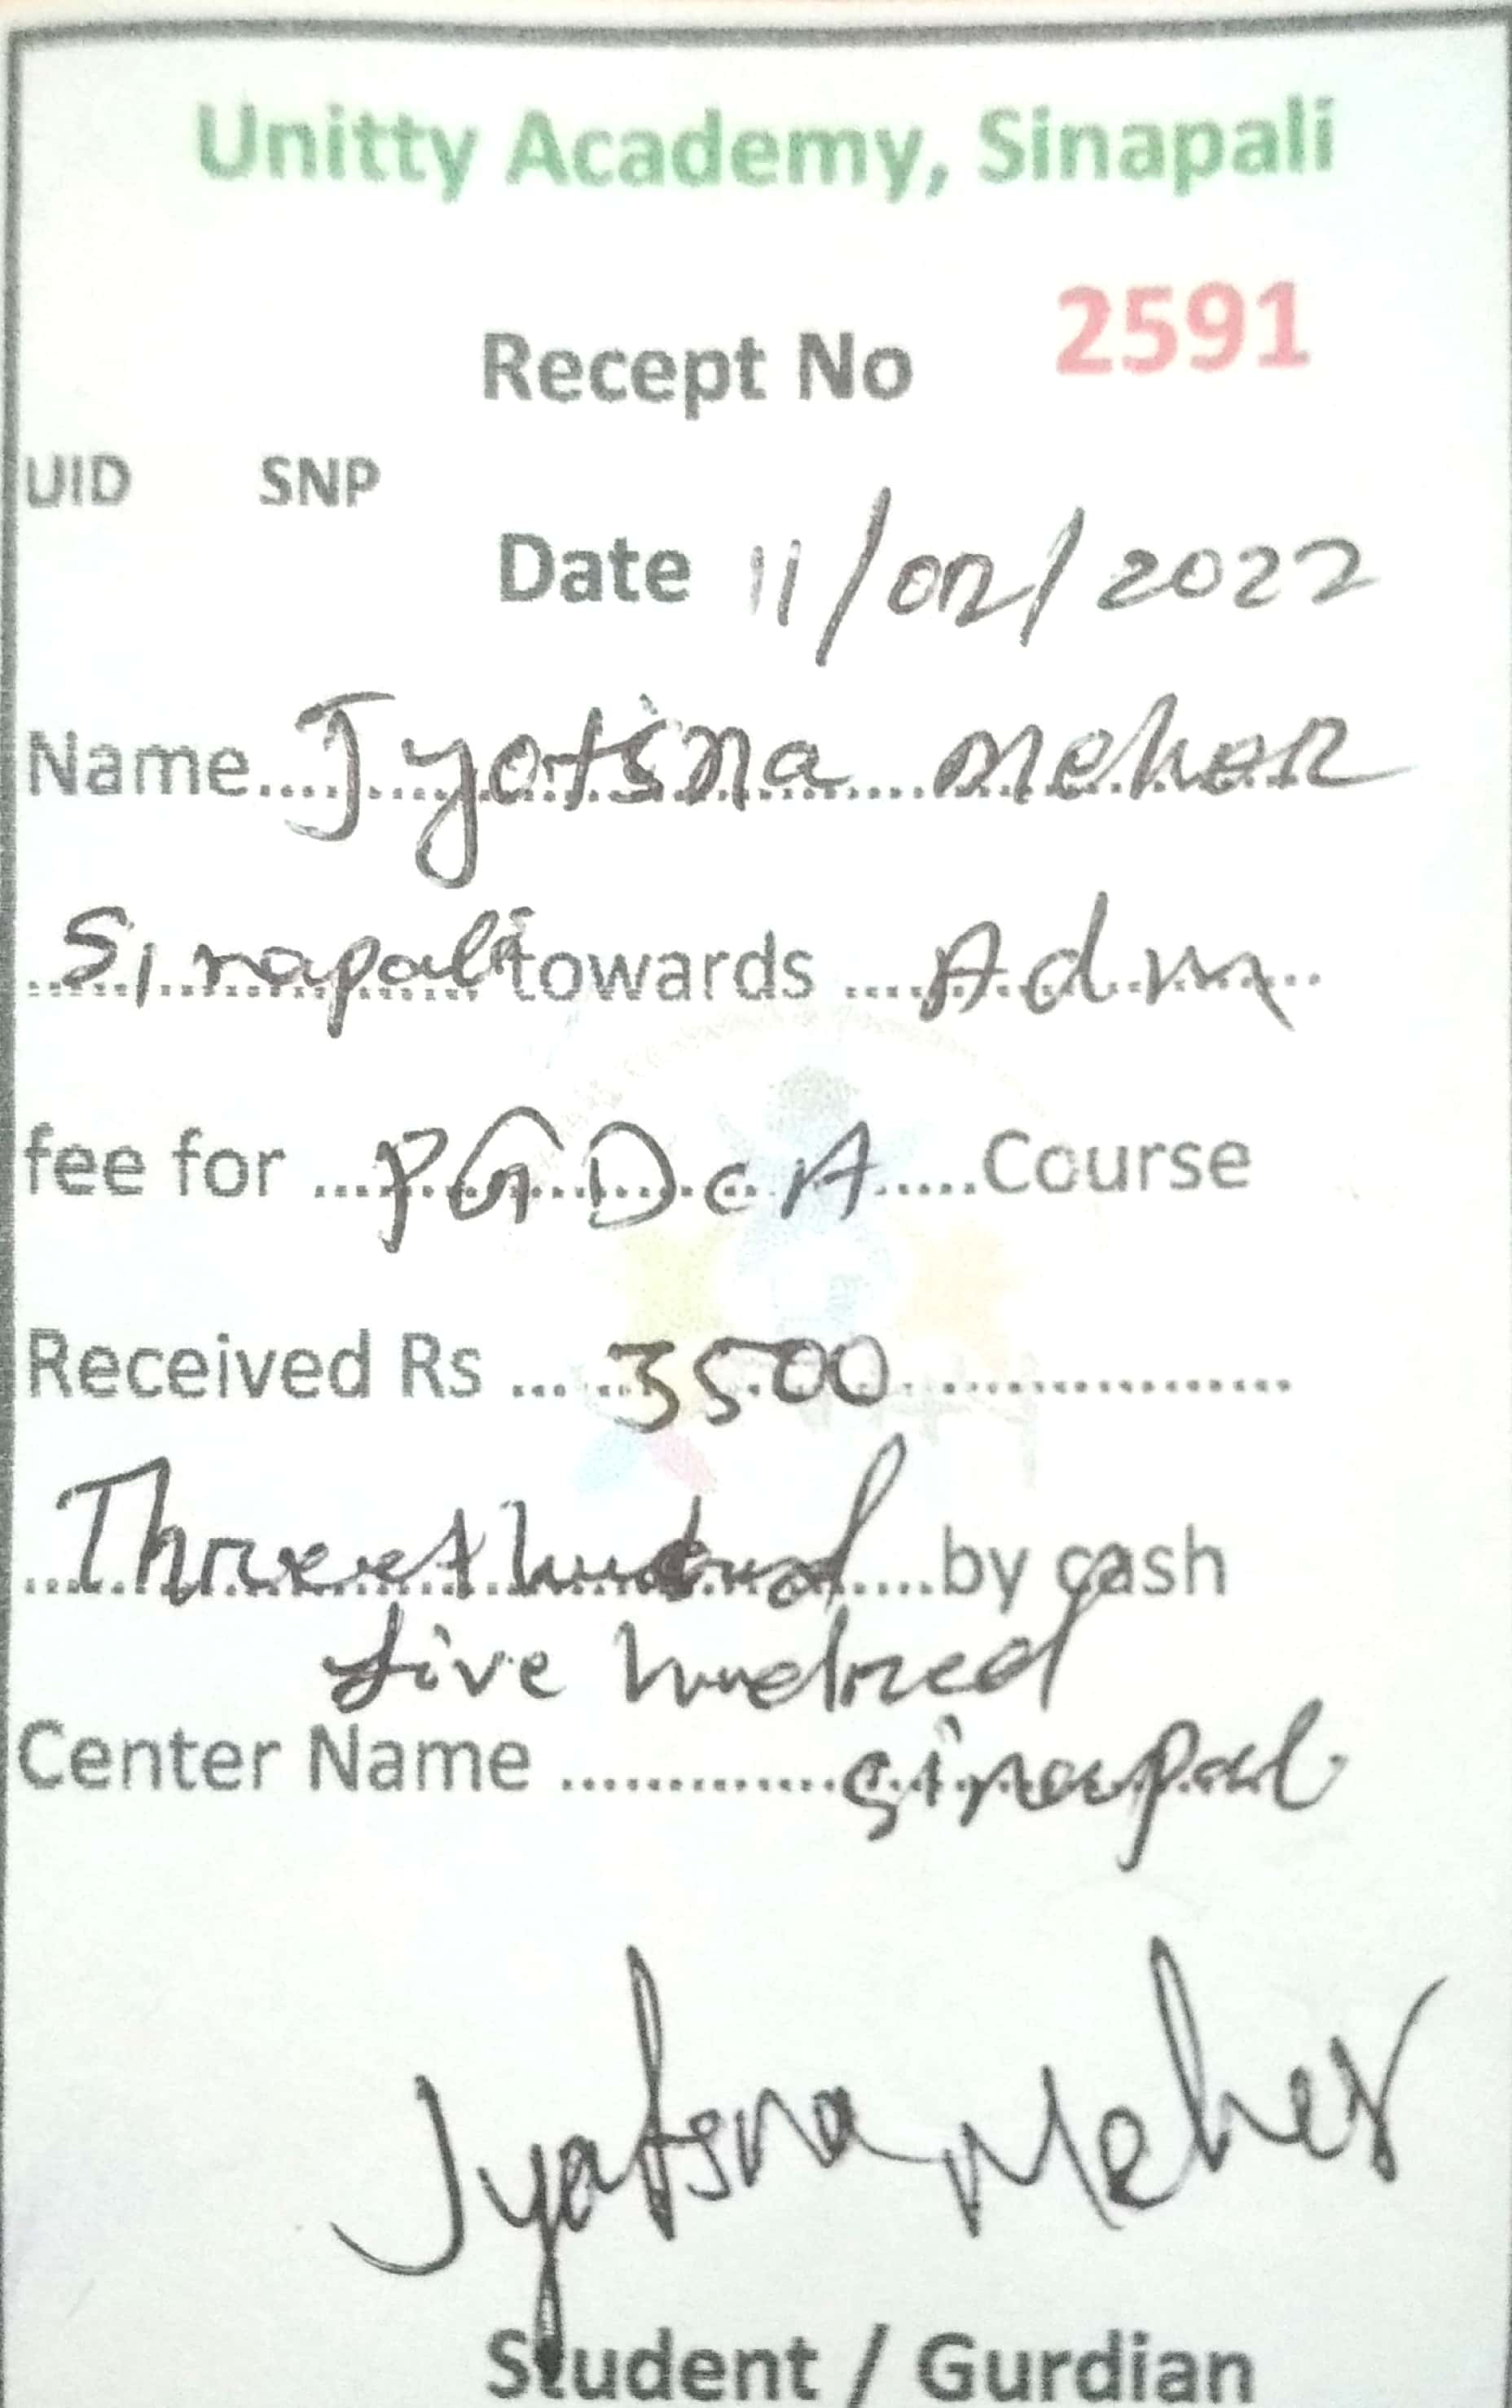 Unitty Academy, Sinapali
Recept No 2591
UID SNP
Date 11/02/2022
Name Jyotsna Meher
Sinapali towards Adm
fee for PGDCA Course
Received Rs 3500
by cash
five hundred
Center Name Sinapal
Jyotsna Meher
Student / Gurdian